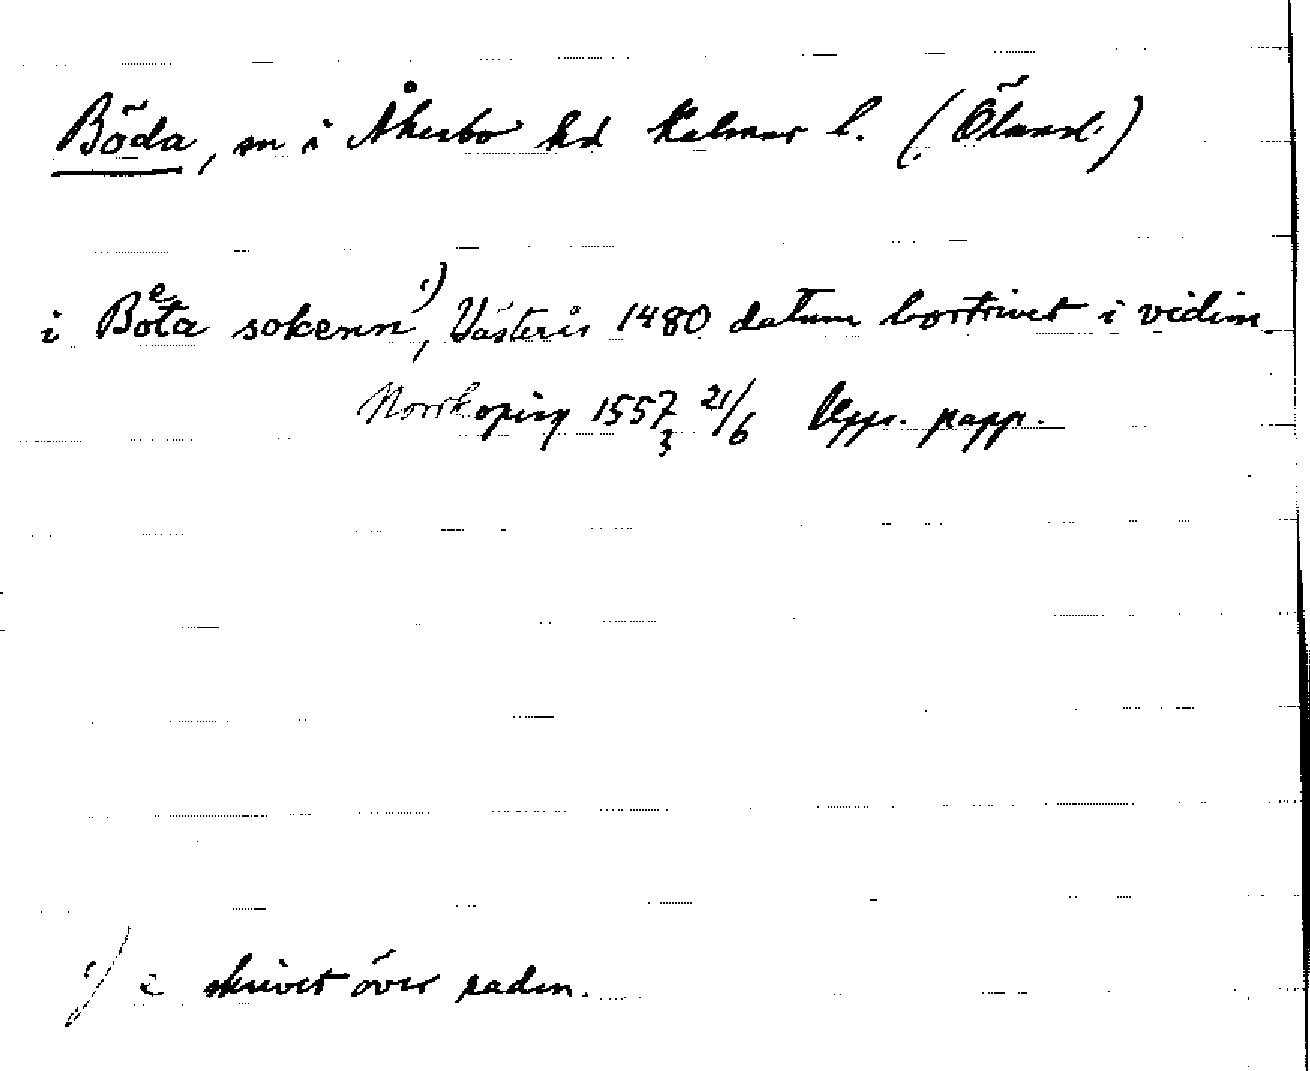 Böda, sn i Åkerbo hd Kalmar l. (Öland.)
i Boͤta sokenn ¹), Västerås 1480 datum bortrivet i vidim.
Norrkoping 1557 21/6 Upps. papp.
3
¹) e skrivet över raden.